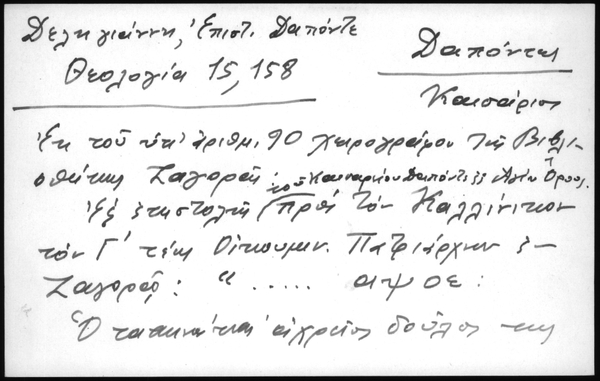 Δεληγιάννη, Ἐπιστ. Δαπόντε
Θεολογία 15, 158
Δαπόντες
Καισάριος
Ἐκ τοῦ ὑπ' ἀριθμ. 90 χειρογράφου τῆς Βιβλι-
οθήκης Ζαγορᾶς τοῦ Καισαρίου Δαπόντε ἐξ Ἁγίου Ὄρους.
Ἐξ ἐπιστολῆς πρὸς τὸν Καλλίνικον
τὸν Γ' τέως Οἰκουμεν. Πατριάρχην ἐν
Ζαγορᾷ: "..... αψοε:
Ὁ ταπεινός καὶ ἀχρεῖος δοῦλος της